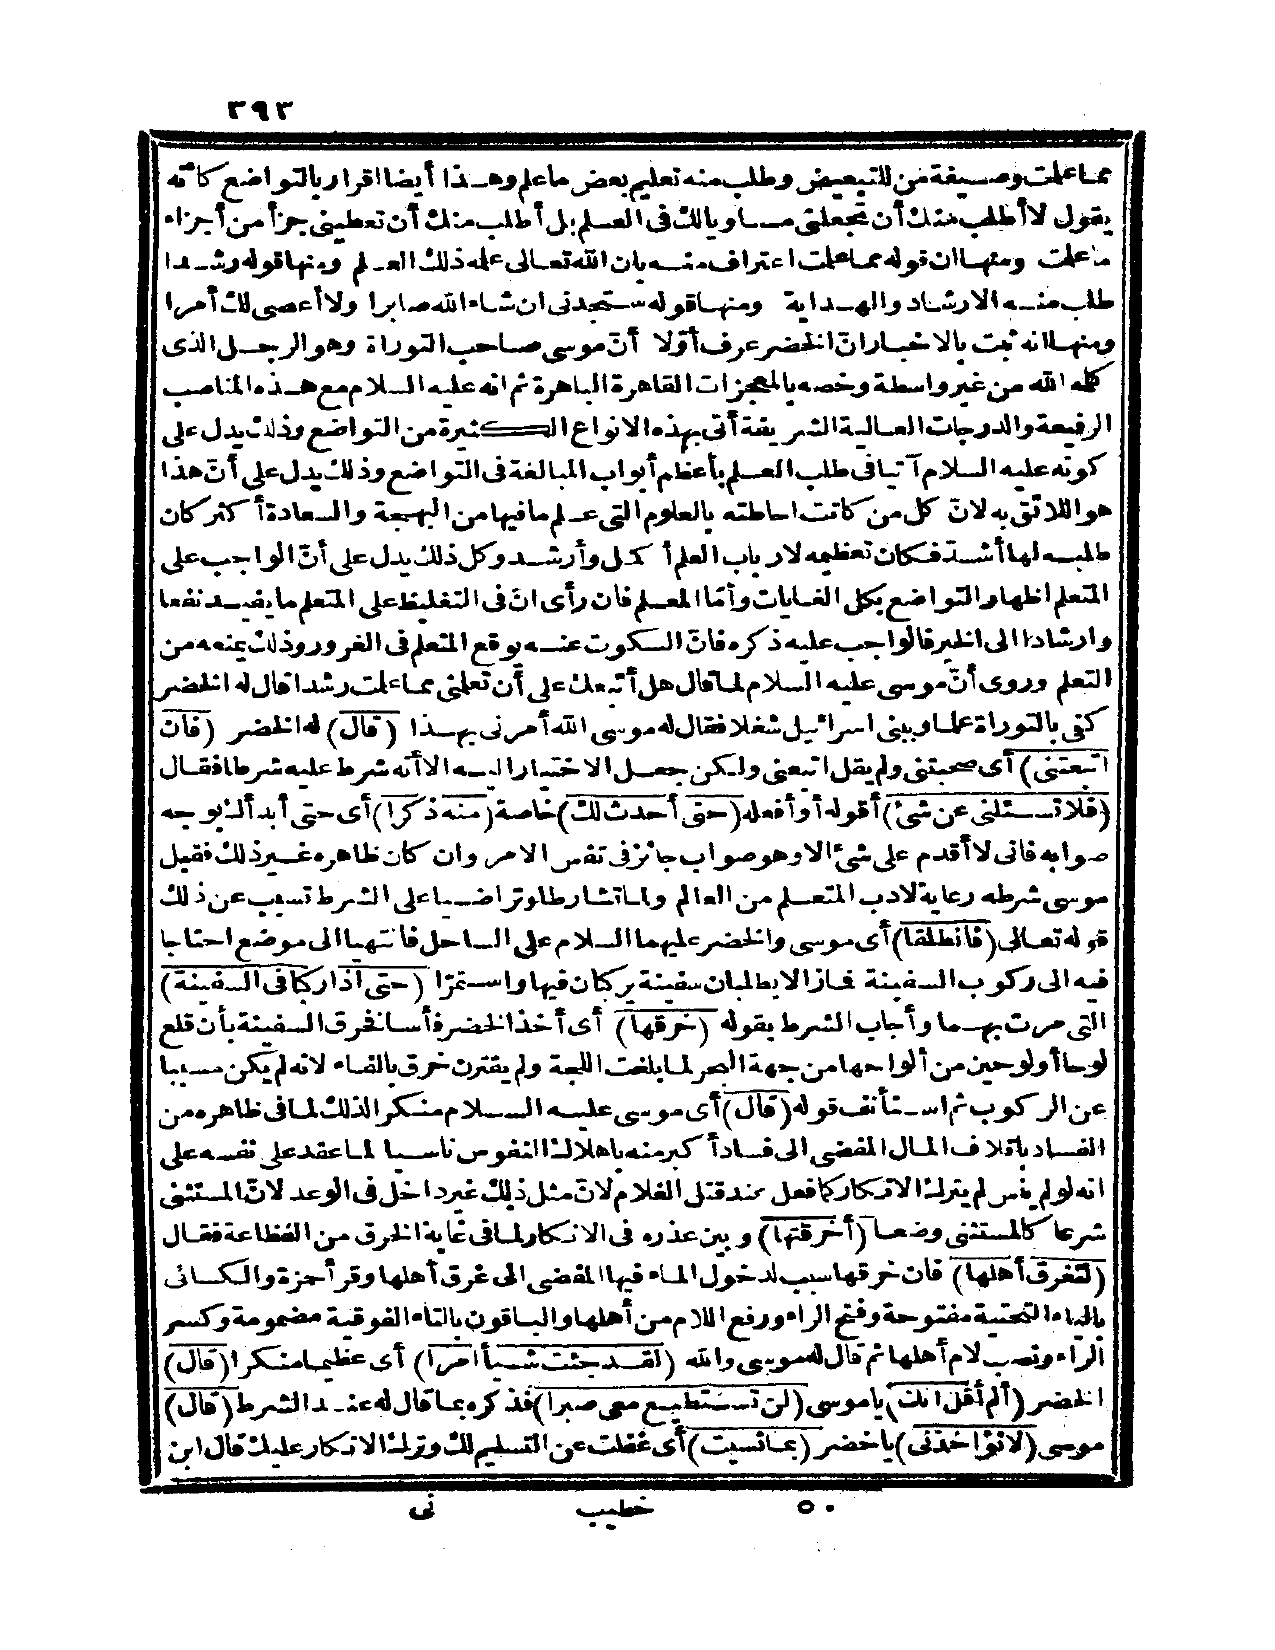 ٣٩٣
مما علمت وصيغة من للتبعيض وطلب منه تعليم بعض ما علم وهذا أيضا اقرار بالتواضع كأنه
يقول لا أطلب منك أن تجعلنى مساويا لك فى العلم بل أطلب منك أن تعطينى جزأ من أجزاء
ما علمت ومنها ان قوله مما علمت اعتراف منه بان الله تعالى علمه ذلك العلم ومنها قوله رشدا
طلب منه الارشاد والهداية ومنها قوله ستجدنى ان شاء الله صابرا ولا أعصى لك أمرا
ومنها انه ثبت بالاخبار ان الخضر عرف أوّلا أنّ موسى صاحب التوراة وهو الرجل الذى
كلمه الله من غير واسطة وخصه بالمعجزات القاهرة الباهرة ثم انه عليه السلام مع هذه المناصب
الرفيعة والدرجات العالية الشريفة أتى بهذه الانواع الكثيرة من التواضع وذلك يدل على
كونه عليه السلام آتيا فى طلب العلم بأعظم أبواب المبالغة فى التواضع وذلك يدل على أنّ هذا
هو اللائق به لانّ كل من كانت احاطته بالعلوم التى علم ما فيها من البهجة والسعادة أكثر كان
طلبه لها أشدّ فكان تعظيمه لارباب العلم أكمل وأرشد وكل ذلك يدل على أنّ الواجب على
المتعلم اظهار التواضع بكل الغايات وأمّا المعلم فان رأى انّ فى التغليظ على المتعلم ما يفيده نفعا
وارشادا الى الخير فالواجب عليه ذكره فانّ السكوت عنه يوقع المتعلم فى الغرور وذلك يمنعه من
التعلم وروى أنّ موسى عليه السلام لما قال هل أتبعك على أن تعلمنى مما علمت رشدا قال له الخضر
كفى بالتوراة علما وببنى اسرائيل شغلا فقال له موسى الله أمرنى بهذا (قال) له الخضر (فان
اتبعتنى) أى صحبتنى ولم يقل اتبعنى ولكن جعل الاختيار اليه الا أنه شرط عليه شرطا فقال
(فلا تسئلنى عن شئ) أقوله أو أفعله (حتى أحدث لك) خاصة (منه ذكرا) أى حتى أبدأك بوجه
صوابه فانى لا أقدم على شئ الا وهو صواب جائز فى نفس الامر وان كان ظاهره غير ذلك فقيل
موسى شرطه رعاية لادب المتعلم من العالم ولما تشارطا وتراضيا على الشرط تسبب عن ذلك
قوله تعالى (فانطلقا) أى موسى والخضر عليهما السلام على الساحل فانتهيا الى موضع احتاجا
فيه الى ركوب السفينة فمازالا يطلبان سفينة يركبان فيها واستمرّا (حتى اذا ركبا فى السفينة)
التى مرت بهما وأجاب الشرط بقوله (خرقها) أى أخذ الخضر فأسا فخرق السفينة بأن قلع
لوحا أو لوحين من ألواحها من جهة البحر لما بلغت اللجة ولم يقترن خرق بالفاء لانه لم يكن مسببا
عن الركوب ثم استأنف قوله (قال) أى موسى عليه السلام منكرا لذلك لما فى ظاهره من
الفساد باتلاف المال المفضى الى فساد أكبر منه باهلاك النفوس ناسيا لما عقد على نفسه على
انه لو لم ينس لم يترك الانكار كما فعل عند قتل الغلام لانّ مثل ذلك غير داخل فى الوعد لانّ المستثنى
شرعا كالمستثنى وضعا (أخرقتها) وبين عذره فى الانكار لما فى غاية الخرق من الفظاعة فقال
(لتغرق أهلها) فان خرقها سبب لدخول الماء فيها المفضى الى غرق أهلها وقرأ حمزة والكسائى
بالياء التحتية مفتوحة وفتح الراء ورفع اللام من أهلها والباقون بالتاء الفوقية مضمومة وكسر
الراء ونصب لام أهلها ثم قال له موسى والله (لقد جئت شيأ امرا) أى عظيما منكرا (قال)
الخضر (ألم أقل انك) يا موسى (لن تستطيع معى صبرا) فذكره بما قال له عند الشرط (قال)
موسى (لا تؤاخذنى) يا خضر (بما نسيت) أى غفلت عن التسليم لك وترك الانكار عليك قال ابن
٥٠ خطيب نى